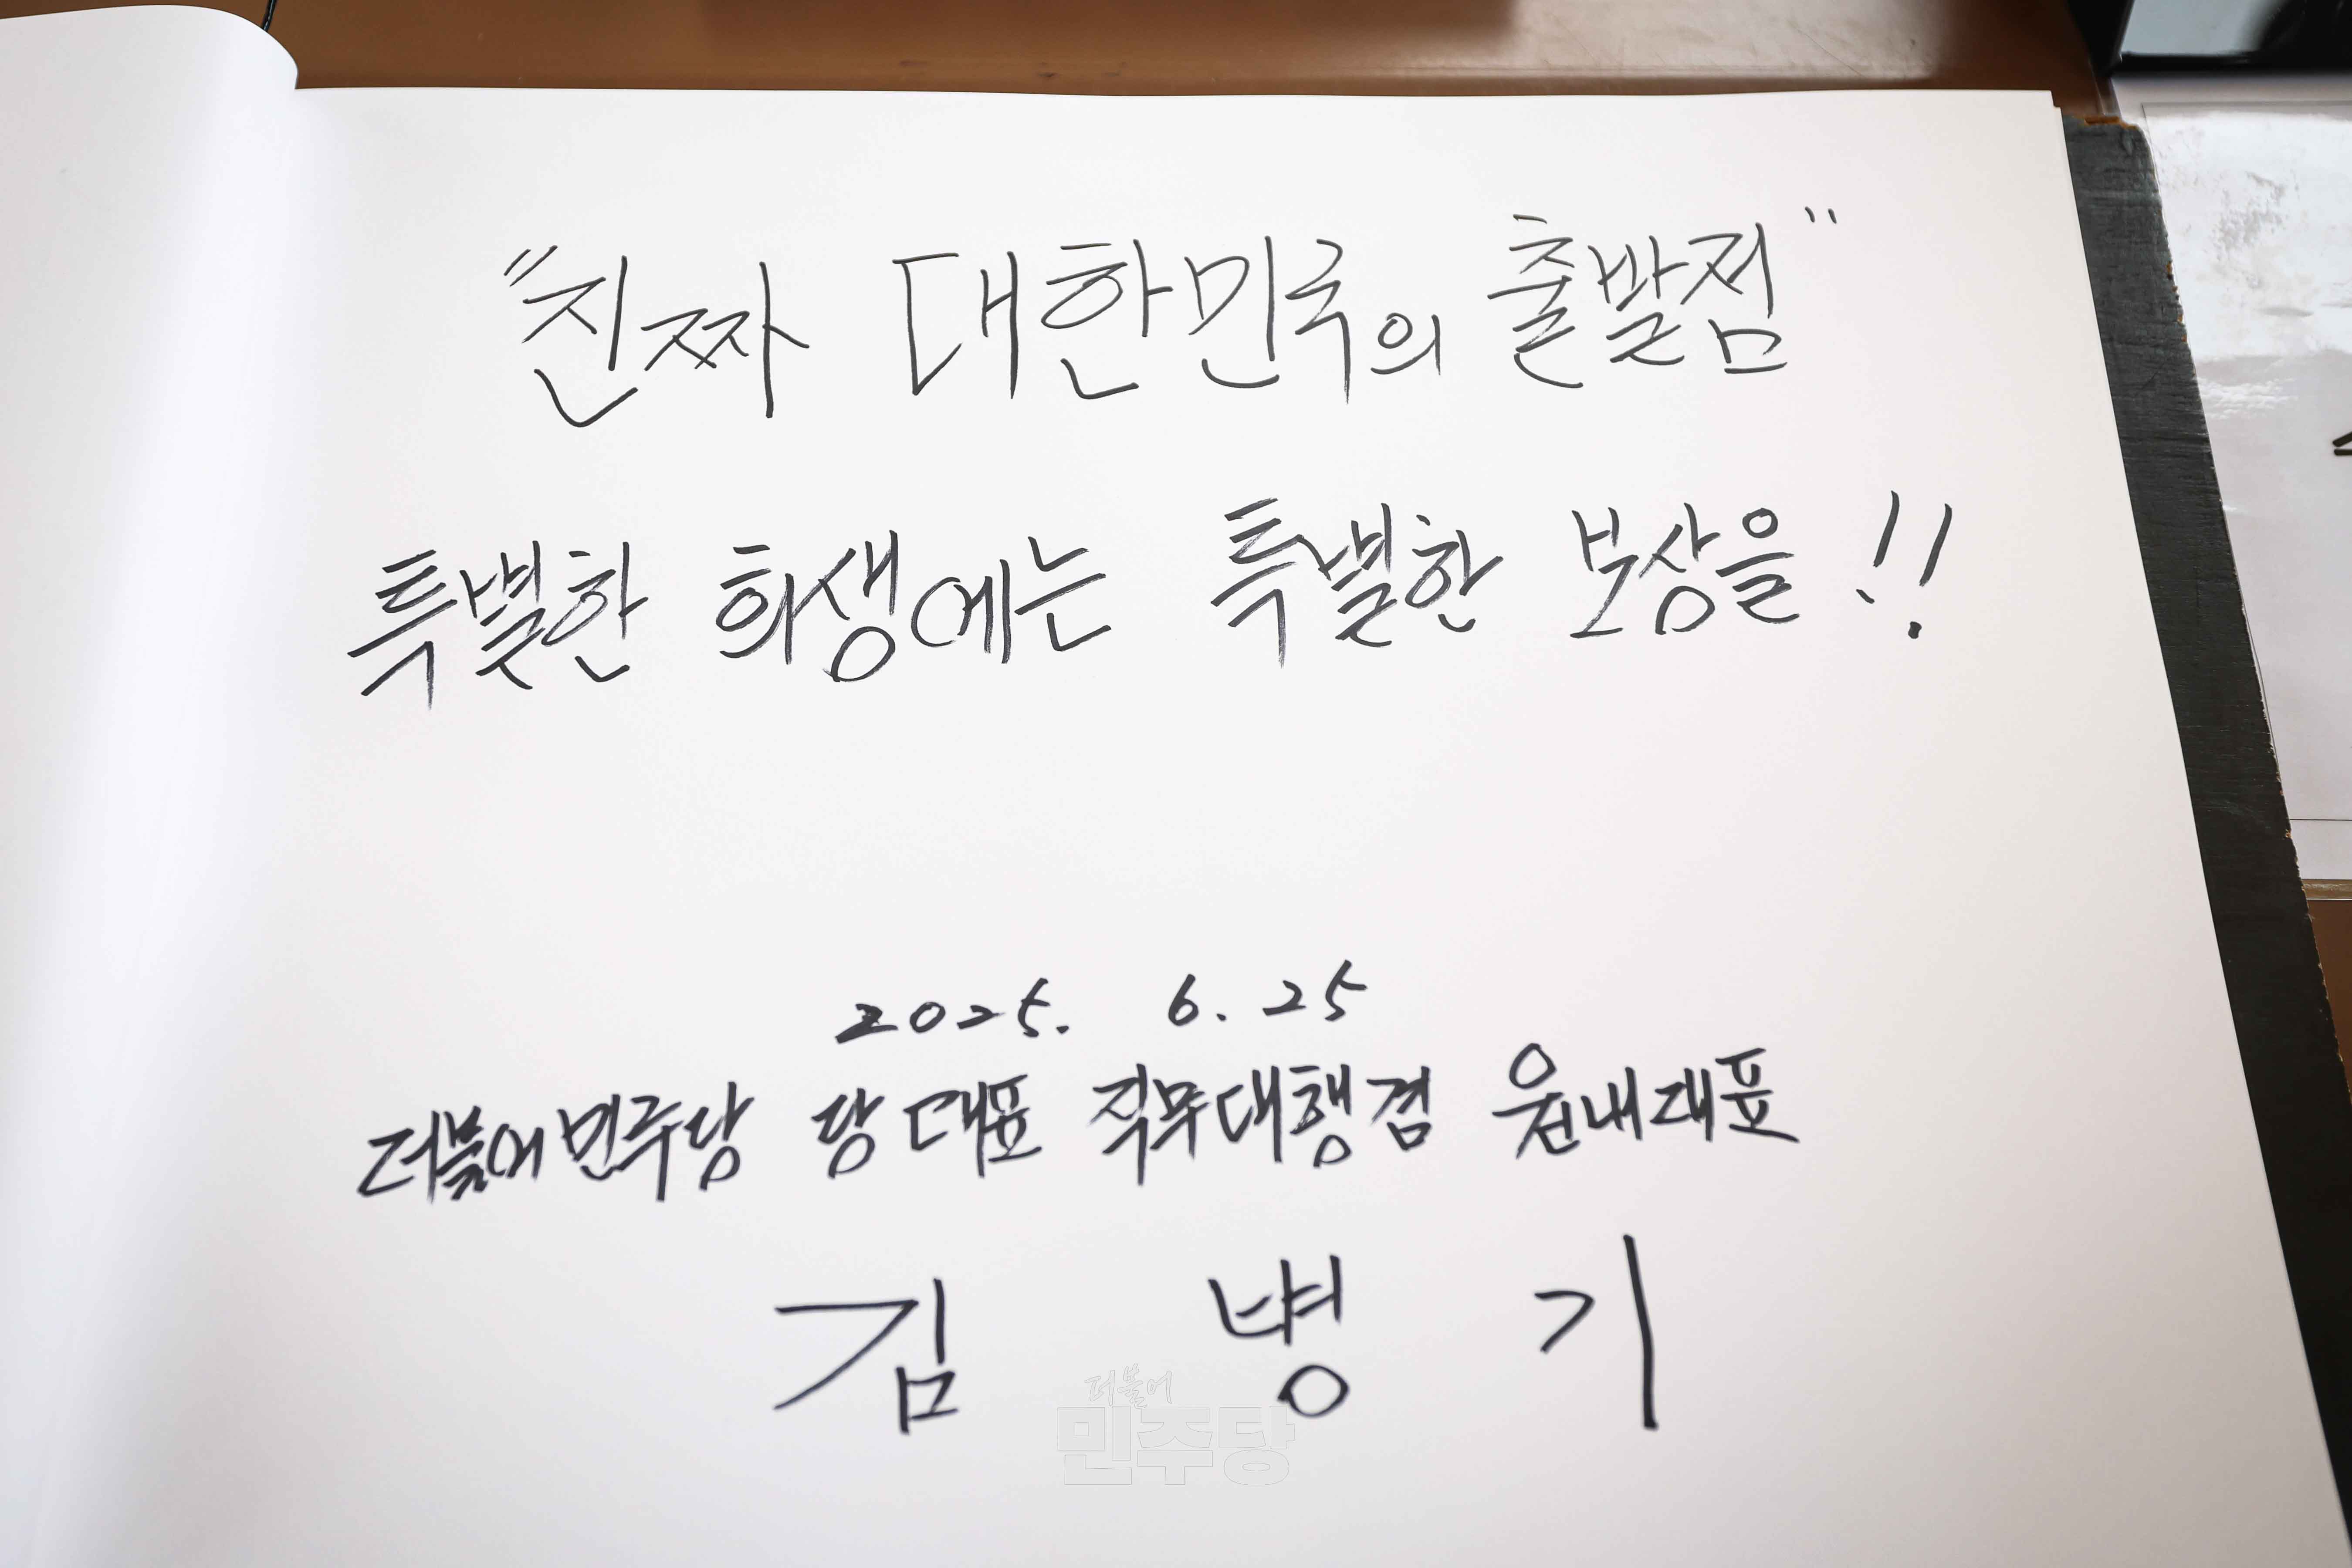 "진짜 대한민국의 출발점"
특별한 희생에는 특별한 보상을!!
2025. 6. 25
더불어민주당 당대표 직무대행겸 원내대표
김 병 기
더불어
민주당